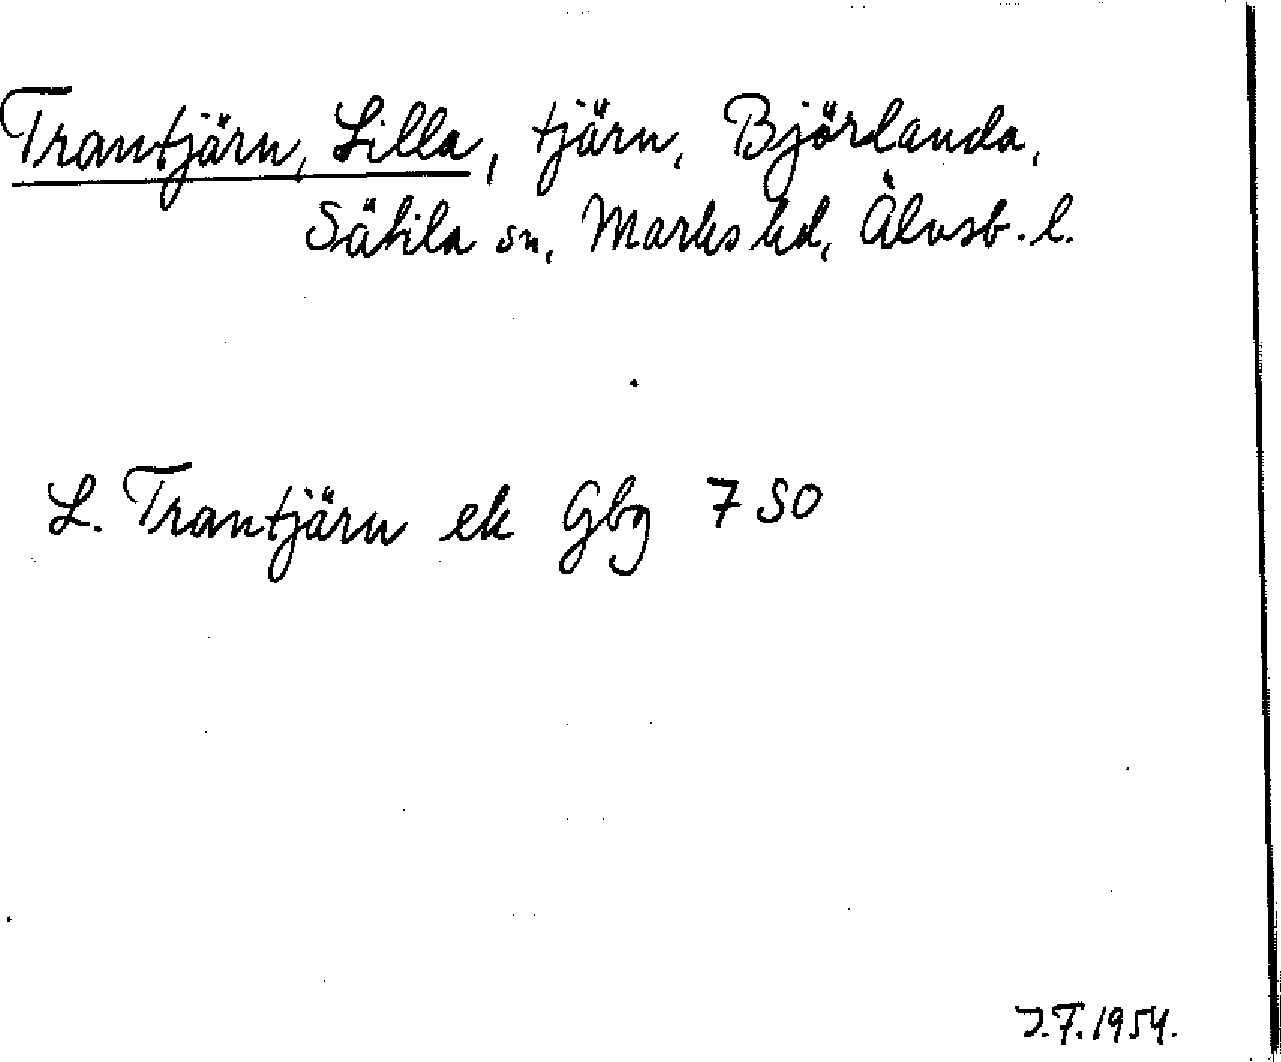 Trantjärn, Lilla, tjärn, Björlanda,
Sätila sn, Marks hd, Älvsb. l.
L. Trantjärn ek Gbg 7 SO
J.F. 1954.